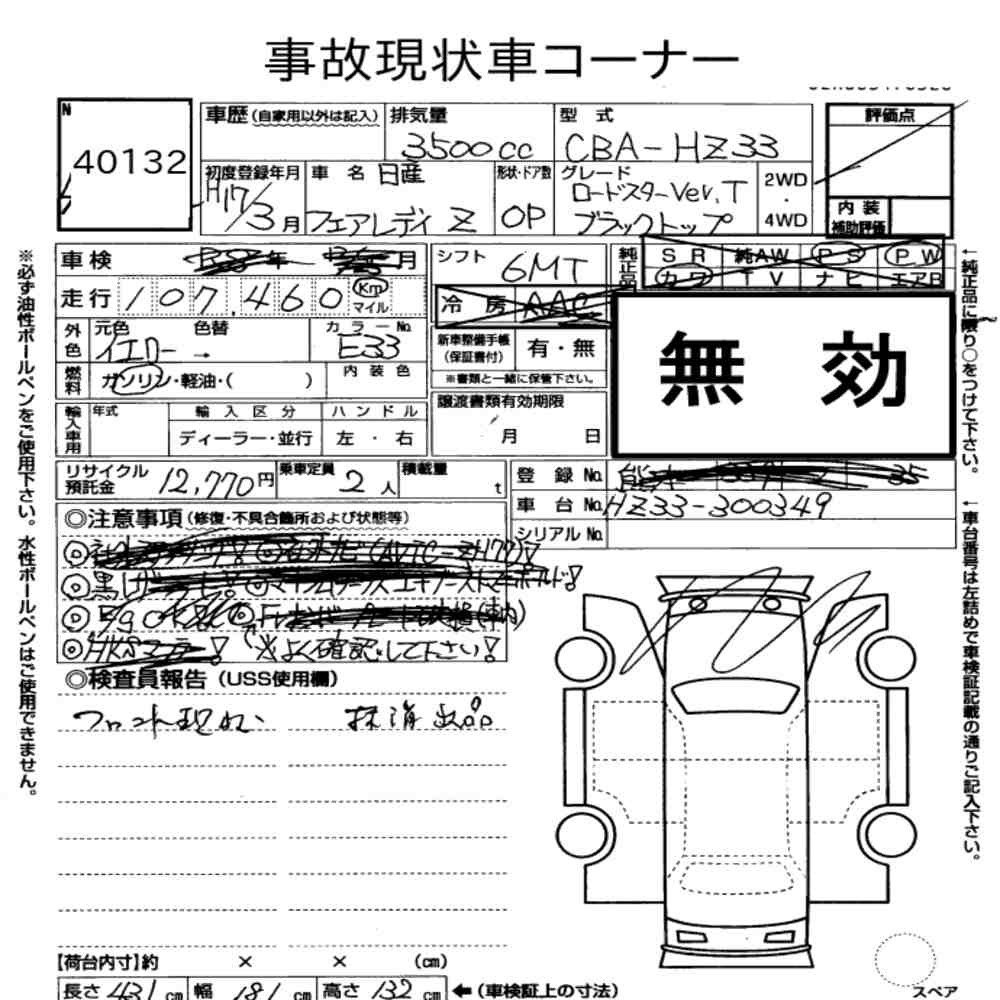 事故現状車コーナー
N
40132
車歴 (自家用以外は記入)
排気量
3500cc
型式
CBA-HZ33
評価点
初度登録年月
H17/3月
車名 日産
フェアレディ Z
形状・ドア数
OP
グレード
ロードスターVer.T
ブラックトップ
2WD
・
4WD
内装
補助評価
車検 年 月
シフト
6MT
純正品
SR 純AW PS PW
カワ TV ナビ エアB
走行 107,460 Km
マイル
冷房 AAC
外色
元色 色替
イエロー →
カラーNo.
E33
新車整備手帳
(保証書付)
有・無
※書類と一緒に保管下さい。
無効
燃料
ガソリン・軽油・( )
内装色
輸入車用
年式
輸入区分
ディーラー・並行
ハンドル
左・右
譲渡書類有効期限
月 日
リサイクル
預託金
12,770円
乗車定員
2人
積載量
t
登録No.
35
車台No. HZ33-300349
シリアルNo.
◎注意事項 (修復・不具合箇所および状態等)
(※よく確認して下さい!
◎検査員報告 (USS使用欄)
フロント現状 抹消出品
【荷台内寸】約 × × (cm)
長さ 431cm 幅 181cm 高さ 132cm ←(車検証上の寸法)
スペア
※必ず油性ボールペンをご使用下さい。水性ボールペンはご使用できません。
←純正品に限り○をつけて下さい。
←車台番号は左詰めで車検証記載の通りご記入下さい。